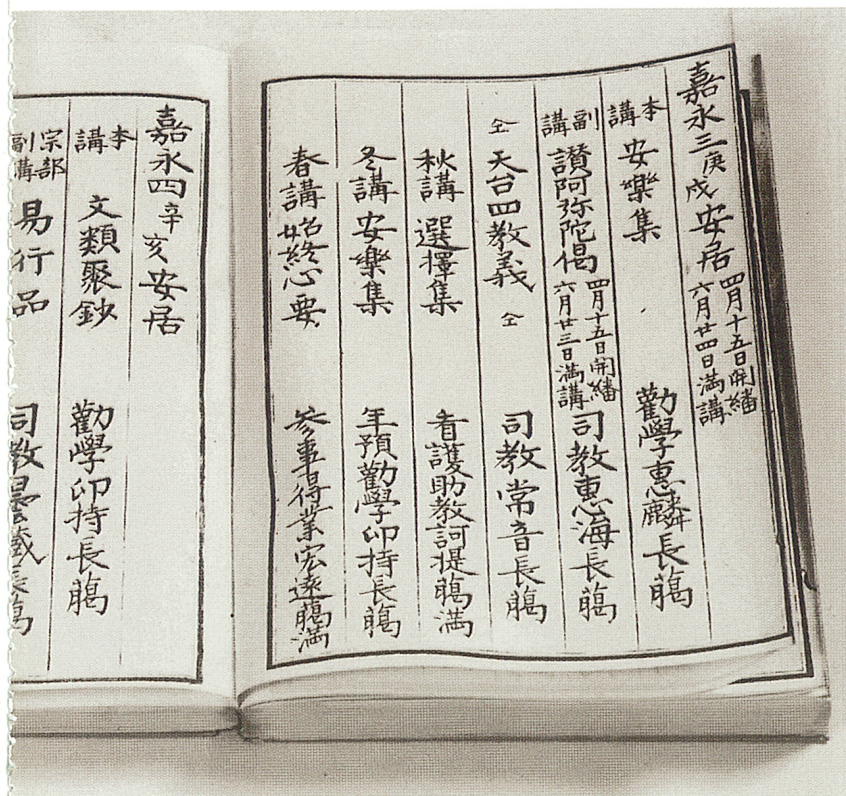 嘉永三庚戌安居 四月十五日開繙 六月廿四日満講
本講 安樂集 勸學惠麟長
副講 讃阿弥陀偈 四月十五日開繙 六月廿三日満講 司教惠海長
仝 天台四教義 仝 司教常音長
秋講 選擇集 看護助教訶提満
冬講 安樂集 年預勸學仰持長
春講 始終心要 参事得業宏遠満
嘉永四辛亥安居
本講 文類聚鈔 勸學仰持長
宗部副講 易行品 司教曇蔵長